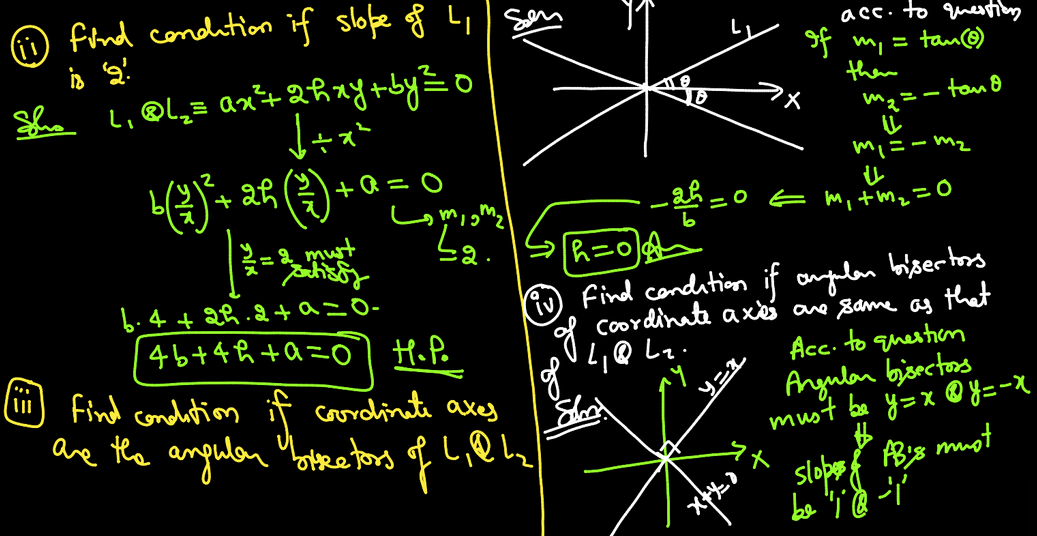 (ii) Find condition if slope of L₁
is '2'.
Soln. L₁ & L₂ ≡ ax² + 2hxy + by² = 0
÷ x²
b(y/x)² + 2h(y/x) + a = 0
→ m₁, m₂
= 2.
y/x = 2 must
satisfy
b.4 + 2h.2 + a = 0.
4b + 4h + a = 0 H.P.
(iii) Find condition if coordinate axes
are the angular bisectors of L₁ & L₂
Soln
Y
L₁
θ
θ
X
acc. to question
If m₁ = tan(θ)
then
m₂ = - tanθ
⇓
m₁ = - m₂
⇓
-2h/b = 0 ⇐ m₁ + m₂ = 0
→ h = 0 A
(iv) Find condition if angular bisectors
of coordinate axes are same as that
of L₁ & L₂.
Soln:
Y
y=x
X
x+y=0
Acc. to question
Angular bisectors
must be y = x & y = -x
⇓
slopes of AB's must
be '1' & '-1'